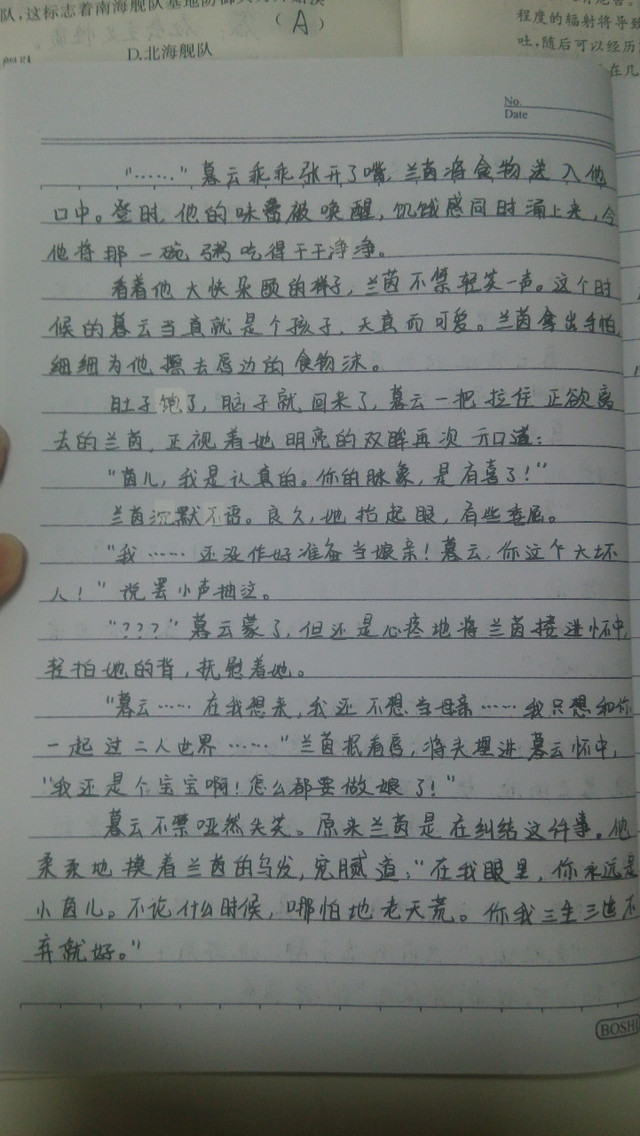 队,这标志着南海舰队基地防御
(A)
D.北海舰队
程度的辐射将导致
吐,随后可以经历
在几
No.
Date
"……"暮云乖乖张开了嘴,兰茵将食物送入他
口中。登时,他的味蕾被唤醒,饥饿感同时涌上来,令
他将那一碗粥吃得干干净净。
看着他大快朵颐的样子,兰茵不禁轻笑一声。这个时
候的暮云当真就是个孩子,天真而可爱。兰茵拿出手帕,
细细为他擦去唇边的食物沫。
肚子饱了,脑子就回来了,暮云一把拉住正欲离
去的兰茵,正视着她明亮的双眸再次开口道:
"茵儿,我是认真的。你的脉象,是有喜了!"
兰茵沉默不语。良久,她抬起眼,有些委屈。
"我……还没作好准备当娘亲!暮云,你这个大坏
人!"说罢小声抽泣。
"???"暮云蒙了,但还是心疼地将兰茵搂进怀中,
轻拍她的背,抚慰着她。
"暮云……在我想来,我还不想当母亲……我只想和你
一起过二人世界……"兰茵抿着唇,将头埋进暮云怀中,
"我还是个宝宝啊!怎么都要做娘了!"
暮云不禁哑然失笑。原来兰茵是在纠结这件事。他
柔柔地摸着兰茵的乌发,宽腻道:"在我眼里,你永远是
小茵儿。不论什么时候,哪怕地老天荒。你我三生三世不
弃就好。"
BOSHI